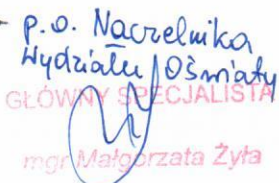 p.o. Naczelnika
Wydziału Oświaty
GŁÓWNY SPECJALISTA
mgr Małgorzata Żyła